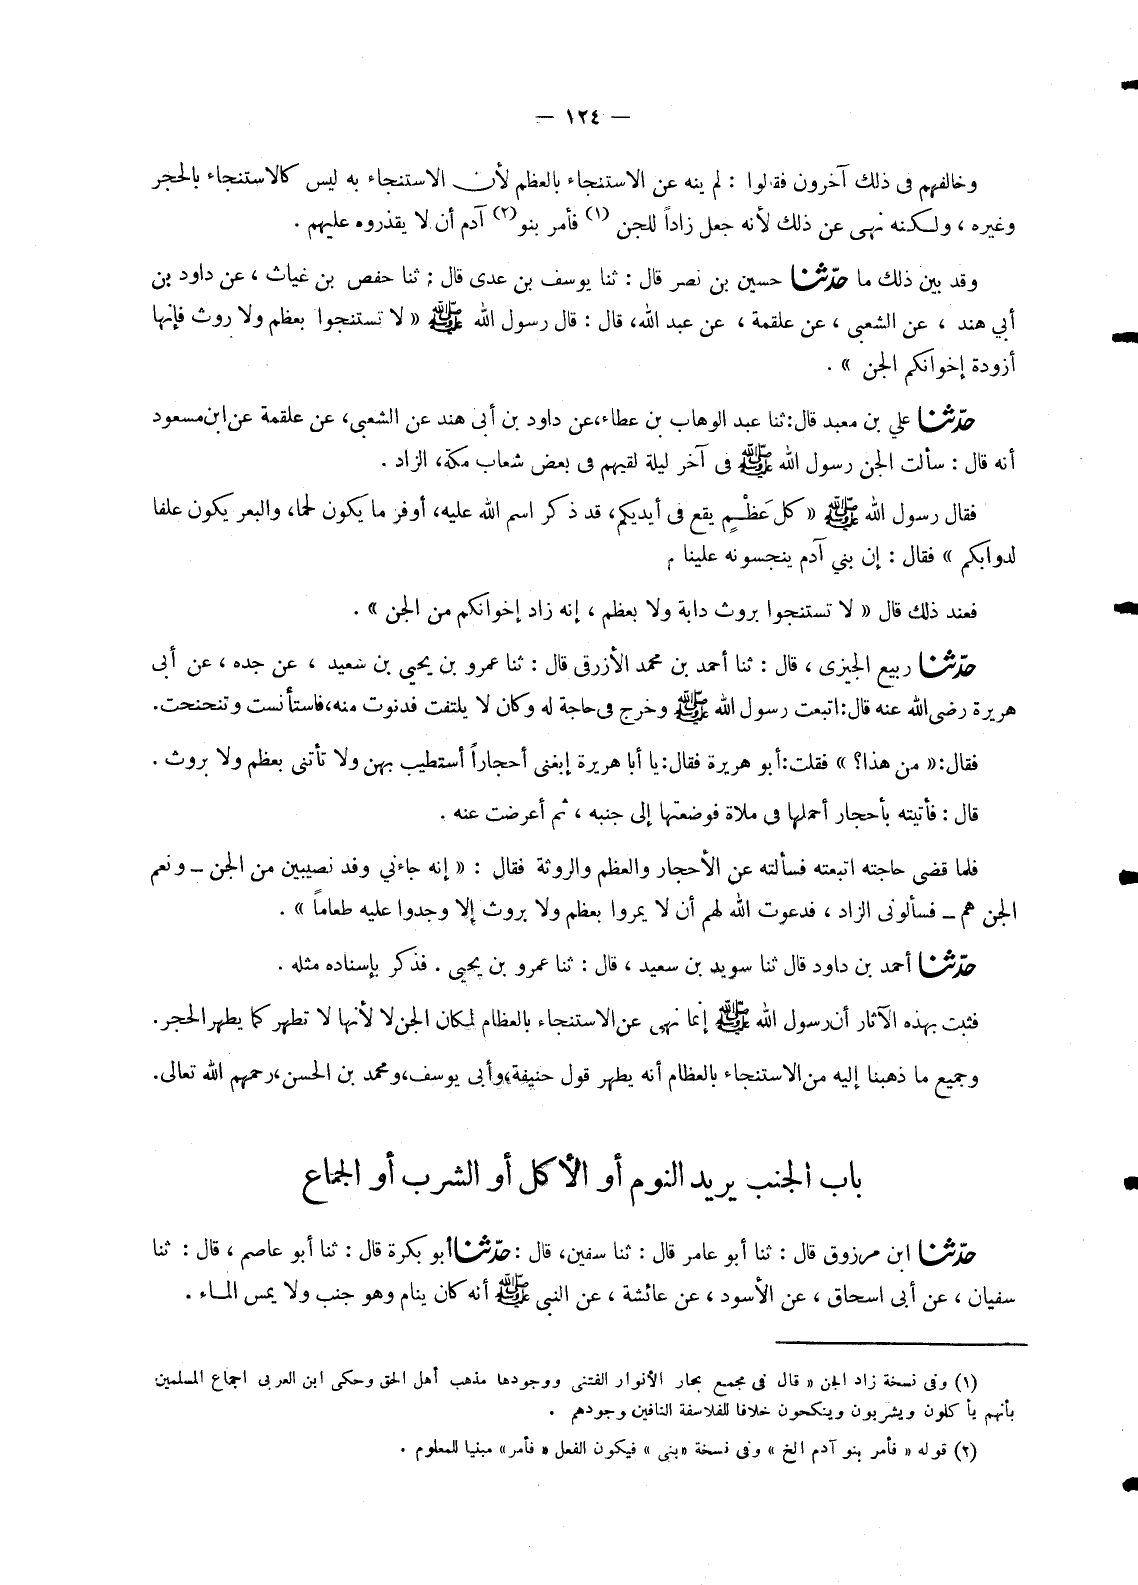 — ١٢٤ —
وخالفهم فى ذلك آخرون فقالوا : لم ينه عن الاستنجاء بالعظم لأن الاستنجاء به ليس كالاستنجاء بالحجر
وغيره ، ولكنه نهى عن ذلك لأنه جعل زاداً للجن (١) فأمر بنو (٢) آدم أن لا يقذروه عليهم .
وقد بين ذلك ما حدّثنا حسين بن نصر قال : ثنا يوسف بن عدى قال : ثنا حفص بن غياث ، عن داود بن
أبي هند ، عن الشعبى ، عن علقمة ، عن عبد الله، قال : قال رسول الله ﷺ « لا تستنجوا بعظم ولا روث فإنها
أزودة إخوانكم الجن » .
حدّثنا علي بن معبد قال:ثنا عبد الوهاب بن عطاء،عن داود بن أبى هند عن الشعبى، عن علقمة عن ابن مسعود
أنه قال : سألت الجن رسول الله ﷺ فى آخر ليلة لقيهم فى بعض شعاب مكة، الزاد .
فقال رسول الله ﷺ « كل عَظْمٍ يقع فى أيديكم، قد ذكر اسم الله عليه، أوفر ما يكون لحما، والبعر يكون علفا
لدوابكم » فقال : إن بني آدم ينجسونه علينا م
فعند ذلك قال « لا تستنجوا بروث دابة ولا بعظم ، إنه زاد إخوانكم من الجن » .
حدّثنا ربيع الجيزى ، قال : ثنا أحمد بن محمد الأزرقى قال : ثنا عمرو بن يحيى بن سعيد ، عن جده ، عن أبى
هريرة رضى الله عنه قال:اتبعت رسول الله ﷺ وخرج فى حاجة له وكان لا يلتفت فدنوت منه،فاستأنست وتنحنحت.
فقال:« من هذا؟ » فقلت:أبو هريرة فقال:يا أبا هريرة إبغنى أحجاراً أستطيب بهن ولا تأتنى بعظم ولا بروث .
قال : فأتيته بأحجار أحملها فى ملاة فوضعتها إلى جنبه ، ثم أعرضت عنه .
فلما قضى حاجته اتبعته فسألته عن الأحجار والعظم والروثة فقال : « إنه جاءني وفد نصيبين من الجن ــ ونعم
الجن هم ــ فسألونى الزاد ، فدعوت الله لهم أن لا يمروا بعظم ولا بروث إلا وجدوا عليه طعاماً » .
حدّثنا أحمد بن داود قال ثنا سويد بن سعيد ، قال : ثنا عمرو بن يحيى . فذكر بإسناده مثله .
فثبت بهذه الآثار أن رسول الله ﷺ إنما نهى عن الاستنجاء بالعظام لمكان الجن لا لأنها لا تطهر كما يطهر الحجر.
وجميع ما ذهبنا إليه من الاستنجاء بالعظام أنه يطهر قول حنيفة،وأبى يوسف،ومحمد بن الحسن،رحمهم الله تعالى.
باب الجنب يريد النوم أو الأكل أو الشرب أو الجماع
حدّثنا ابن مرزوق قال : ثنا أبو عامر قال : ثنا سفين، قال : حدّثنا أبو بكرة قال : ثنا أبو عاصم ، قال : ثنا
سفيان ، عن أبى اسحاق ، عن الأسود ، عن عائشة ، عن النبى ﷺ أنه كان ينام وهو جنب ولا يمس الماء .
(١) وفى نسخة زاد الجن « قال فى مجمع بحار الأنوار الفتنى ووجودها مذهب أهل الحق وحكى ابن العربى اجماع المسلمين
بأنهم يأكلون ويشربون وينكحون خلافا للفلاسفة النافين وجودهم .
(٢) قوله « فأمر بنو آدم الخ » وفى نسخة «بنى » فيكون الفعل « فأمر» مبنيا للمعلوم .